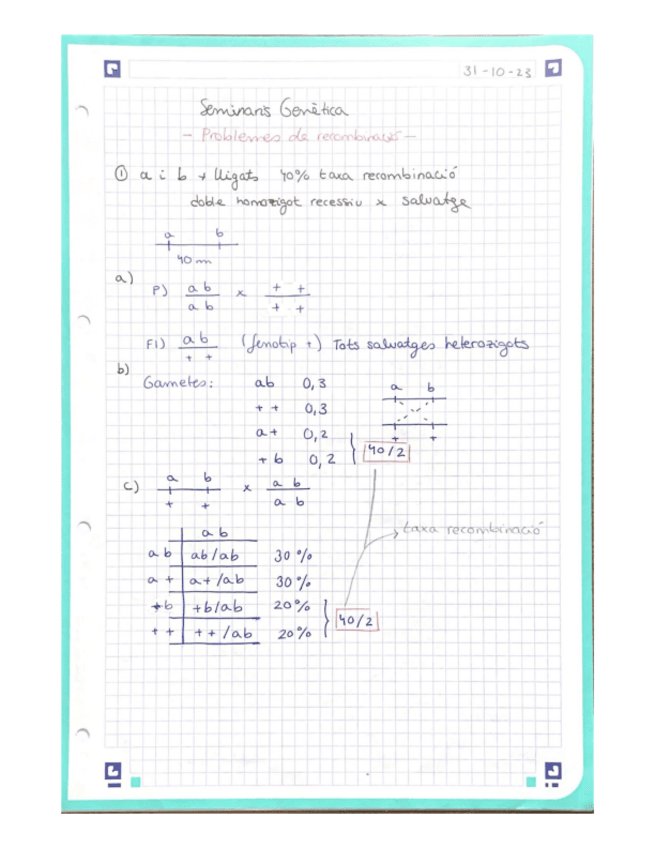 31-10-23
Seminaris Genètica
- Problemes de recombinació -
① a i b → lligats 40% taxa recombinació
doble homozigot recessiu x salvatge
a b
40 m
a)
P) a b / a b x + + / + +
F1) a b / + + (fenotip +) Tots salvatges heterozigots
b)
Gametes: ab 0,3
+ + 0,3
a + 0,2
+ b 0,2 } 40/2
a b
+ +
c) a b / + + x a b / a b
a b
a b ab/ab 30%
a + a+/ab 30%
+b +b/ab 20%
+ + ++/ab 20% } 40/2
taxa recombinació